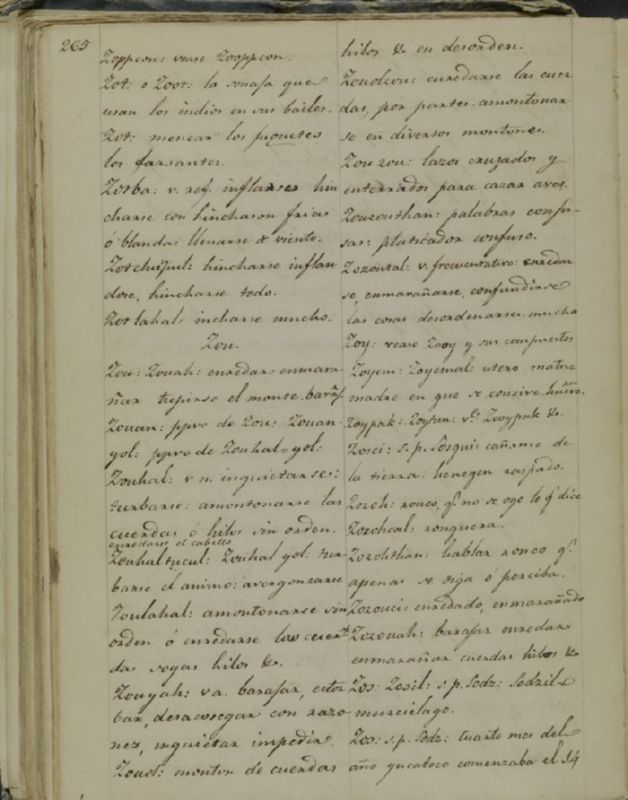 265
Zoppcon: vease Zooppcon.
Zot: ó Zoot: la sonaja que
usan los indios en sus bailes.
Zot: menear los
los farsantes.
Zotba: v. ref. inflarse hin
charse con hinchason frias
ó blandas llenarse d viento.
hincharse inflan
dose, hincharse todo.
Zotlahal: incharse mucho.
Zou.
Zou: Zouah: enredar: enmara
ñar tupirse el monte.
Zouan: ppro de Zou: Zouan
yol: ppro de Zouhal=yol:
Zouhal: v n. inquietarse:
turbarse: amontonarse las
cuerdas ó hilos sin orden.
enredarse el cabello
Zouhal yol: tur
barse el animo: avergonzarse
Zoulahal: amontonarse sin
orden ó enredarse
das sogas hilos &.
Zouyah: v a. barajar, estor
bar, desasosegar con razo
nes, inquietar impedir.
Zouol: monton de cuerdas
hilos &. en desorden.
enredarse las cuer
das, por partes. amontonar
se en diversos montones.
Zouzou: lazos cruzados y
enterrados para cazar aves.
Zouzouthan: palabras confu-
sas: platicador confuso.
v. frecuentativo: enredar
se, enmarañarse, confundirse
las cosas desordenarse mucho
Zoy: vease Zooy y sus compuestos
Zoyem: Zoyemal: utero matriz
madre en que se concive
Zoypak: Zooypak &.
Zosci: s. p. Sosquí: cañamo de
la tierra. henequen raspado.
Zozch: ronco, q.e no se oye lo q.e dice
ronquera.
hablar ronco q.e
apenas se oiga ó perciba.
Zozouci: enredado, enmarañado
Zozouah: barajar enredar
enmarañar cuerdas hilos &
Zos: Zosil: s. p. Sodz: Sodzil
murcielago.
Zos: s. p. Sodz: cuarto mes del
año yucateco comenzaba el 14